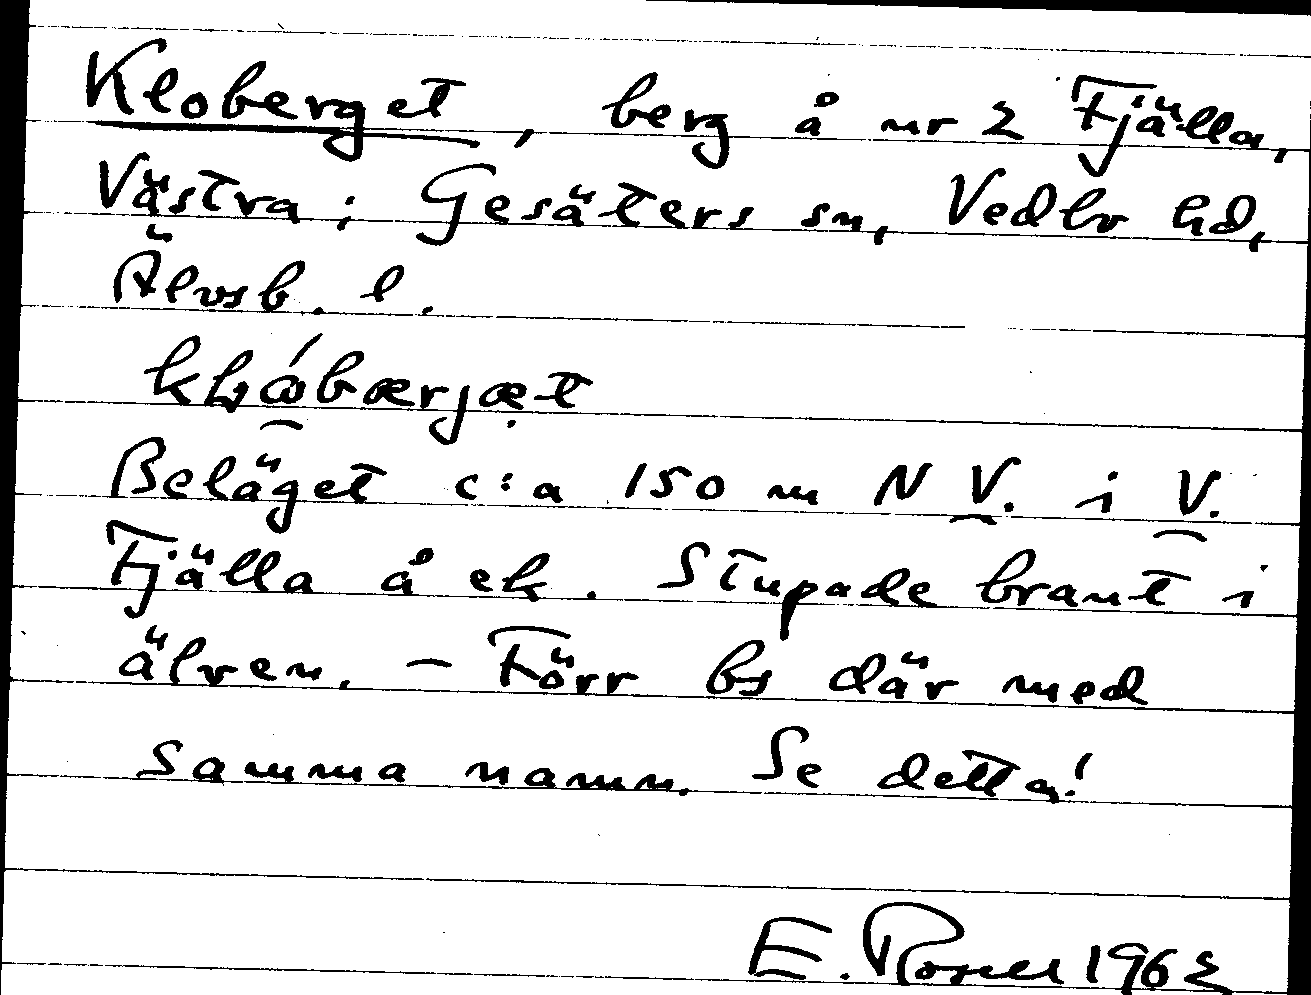 Kloberget, berg å nr 2 Fjälla,
Västra; Gesäters sn, Vedbo hd,
Älvsb. l.
Beläget c:a 150 m N V. i V.
Fjälla å ek. Stupade brant i
älven. - Förr bs där med
samma namn. Se detta!
E. Rosell 1962